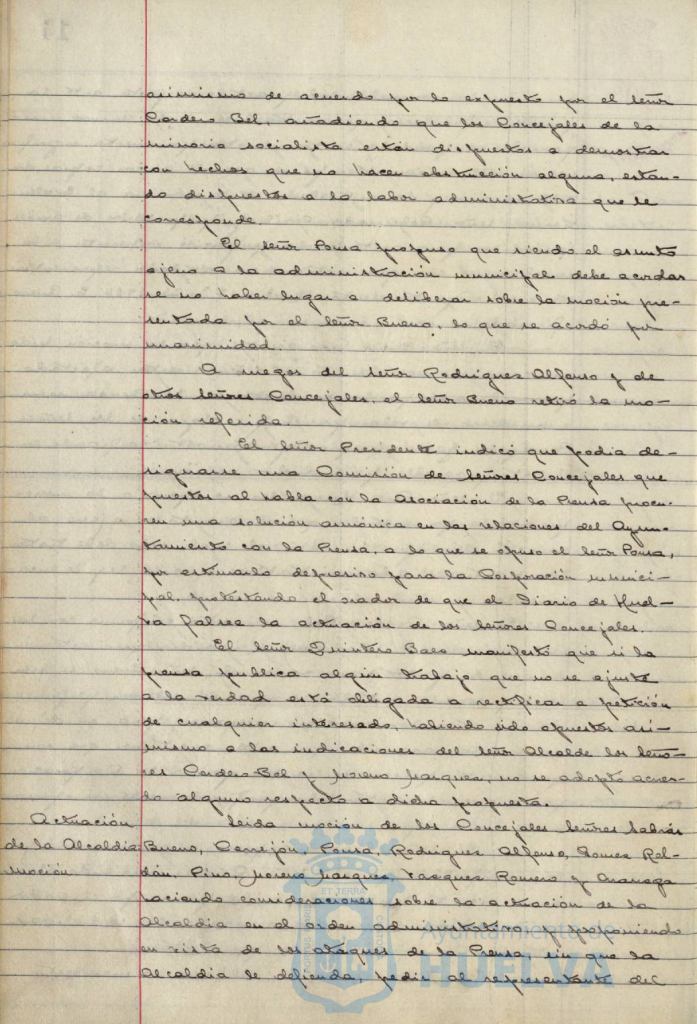 asimismo de acuerdo por lo expuesto por el señor
Cordero Bel, añadiendo que los Concejales de la
minoria socialista están dispuestos a demostrar
con hechos que no hacen obstrucción alguna, estan-
do dispuestos a la labor administrativa que le
corresponde.
El señor Ponsa propuso que siendo el asunto
ajeno a la administración municipal debe acordar
se no haber lugar a deliberar sobre la moción pre-
sentada por el señor Bueno, lo que se acordó por
unanimidad.
A ruegos del señor Rodriguez Alfonso y de
otros señores Concejales, el señor Bueno retiró la mo-
ción referida.
El señor Presidente indicó que podia de-
signarse una Comisión de señores Concejales que
puestos al habla con la Asociación de la Prensa procu-
ren una solución armónica en las relaciones del Ayun-
tamiento con la Prensa, a lo que se opuso el señor Ponsa,
por estimarlo depresivo para la Corporación munici-
pal, protestando el orador de que el Diario de Huel-
va falsea la actuación de los señores Concejales.
El señor Quintero Baez manifestó que si la
prensa publica algún trabajo que no se ajuste
a la verdad está obligada a rectificar a petición
de cualquier interesado, habiendo sido opuestos asi-
mismo a las indicaciones del señor Alcalde los seño-
res Cordero Bel y Moreno Marquez, no se adoptó acuer-
do alguno respecto a dicha propuesta.
Actuación
de la Alcaldia
moción
Leida moción de los Concejales señores Sabrás
Bueno, Carrejón, Ponsa, Rodriguez Alfonso, Gomez Rol-
dán, Pino, Moreno Marquez, Vazquez Romero y
haciendo consideraciones sobre la actuación de la
Alcaldia en el órden administrativo, y proponiendo
en vista de los ataques de la Prensa, sin que la
Alcaldia le defienda, pedir al representante del
ET TERRA
Ayuntamiento de
HUELVA